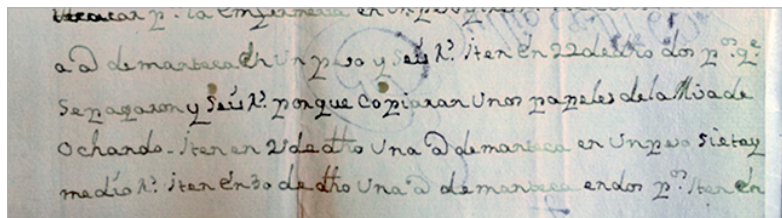 p.r la enfermeria en un peso y
a @ de manteca en Un peso y seis r.s iten en 22 de dho dos p.os q.e
Se pagaron y seis r.s porque Copiaran Unos papeles de la Mia de
Ochando - iten en 21 de dho Una @ de manteca en Un peso siete y
medio r.s iten en 30 de dho Una @ de manteca en dos p.os iten en